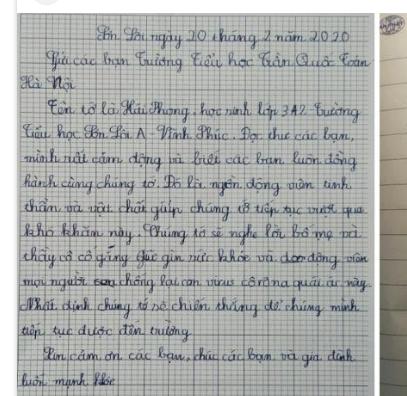 Sơn Lôi ngày 20 tháng 2 năm 2020
Gửi các bạn Trường Tiểu học Trần Quốc Toản
Hà Nội
Tên tớ là Hải Phong, học sinh lớp 3A2 Trường
Tiểu học Sơn Lôi A - Vĩnh Phúc. Đọc thư các bạn,
mình rất cảm động và biết các bạn luôn đồng
hành cùng chúng tớ. Đó là nguồn động viên tinh
thần và vật chất giúp chúng tớ tiếp tục vượt qua
khó khăn này. Chúng tớ sẽ nghe lời bố mẹ và
thầy cô cố gắng giữ gìn sức khỏe và động viên
mọi người chống lại con virus côrôna quái ác này.
Nhất định chúng tớ sẽ chiến thắng để chúng mình
tiếp tục được đến trường.
Xin cảm ơn các bạn, chúc các bạn và gia đình
luôn mạnh khỏe